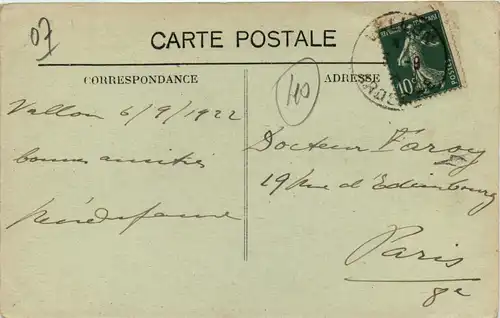 07
CARTE POSTALE
CORRESPONDANCE
ADRESSE
40
10c
Vallon 6/9/1922
bonnes amitiés
Docteur Faroy
19 Rue d'Edimbourg
Paris
8e